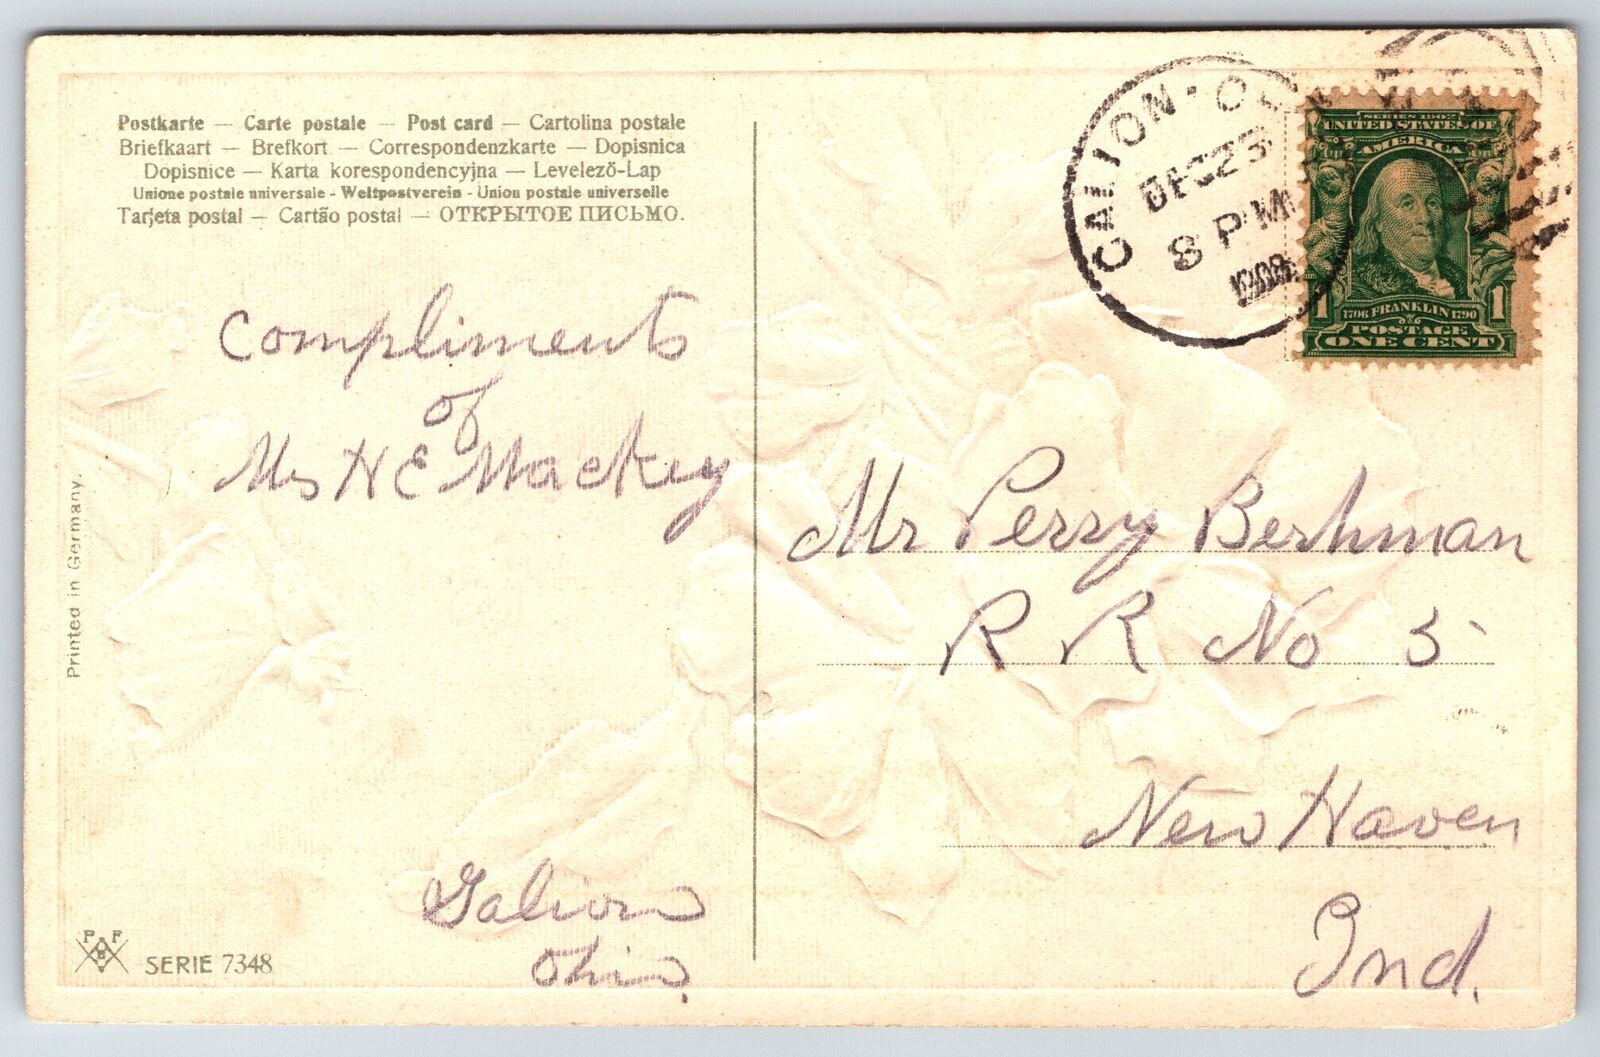 Postkarte — Carte postale — Post card — Cartolina postale
Briefkaart — Brefkort — Correspondenzkarte — Dopisnica
Dopisnice — Karta korespondencyjna — Levelező-Lap
Unione postale universale - Weltpostverein - Union postale universelle
Tarjeta postal — Cartão postal — ОТКРЫТОЕ ПИСЬМО.
GALION · O
DEC 23
8 PM
1908
SERIES 1902
UNITED STATES OF
AMERICA
1706 FRANKLIN 1790
1 POSTAGE 1
ONE CENT
Compliments
of
Mrs H E Mackey
Galion
Ohio.
Mr Perry Berhman
R R No 5
New Haven
Ind.
Printed in Germany.
P F B
SERIE 7348